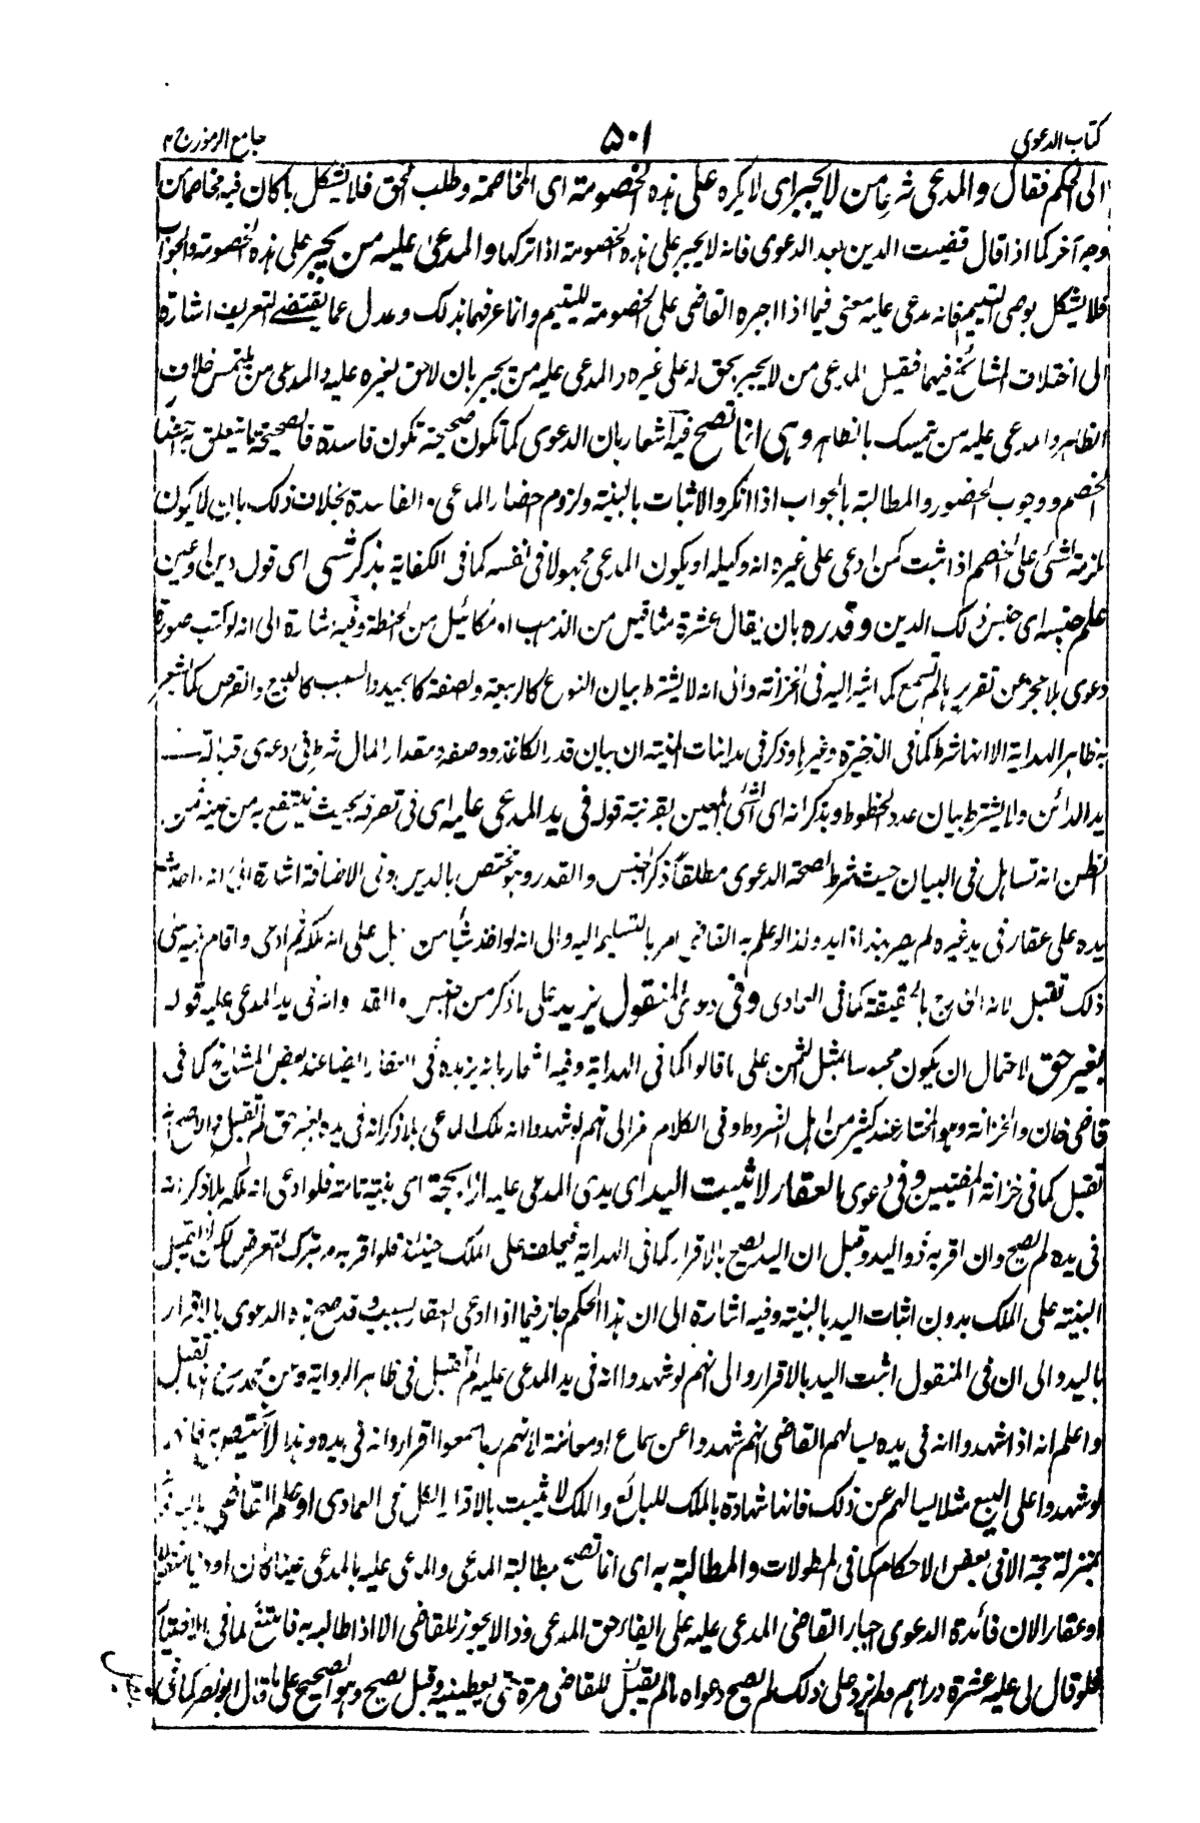 كتاب الدعوى ٥٠١ جامع الرموز ج ٢
الى الحكم فقال والمدعى شرعا من لا يجبر اى لا يكره على هذه الخصومة اى المخاصمة وطلب الحق فلا يشكل بما كان فيه مخاصما من
وجه آخر كما اذا قال قضيت الدين بعد الدعوى فانه لا يجبر على هذه الخصومة اذا تركها والمدعى عليه من يجبر على هذه الخصومة والجواب
فلا يشكل بوصى اليتيم فانه مدعى عليه معنى فيما اذا اجبره القاضى على الخصومة لليتيم وانما عرفهما بذلك وعدل عما يقتضى التعريف اشارة
الى اختلاف المشائخ فيهما فقيل المدعى من لا يجبر بحق له على غيره والمدعى عليه من يجبر بان لا حق لغيره عليه والمدعى من يلتمس خلاف
الظاهر والمدعى عليه من يتمسك بالظاهر وهى انما تصح فيه اشعار بان الدعوى كما تكون صحيحة تكون فاسدة فالصحيحة ما يتعلق به احضار
الخصم ووجوب الحضور والمطالبة بالجواب اذا انكر والاثبات بالبينة ولزوم احضار المدعى والفاسدة بخلاف ذلك بان لا يكون
ملزمة لشئ على الخصم اذا ثبت كمن ادعى على غيره انه وكيله او يكون المدعى مجهولا فى نفسه كما فى الكفاية بذكر شئ اى قول دين او عين
علم جنسه اى جنس ذلك الدين وقدره بان يقال عشرة مثاقيل من الذهب او مكائيل من الحنطة وفيه اشارة الى انه لو كتب صورة
دعوى بلا عجز عن تقريرها لم تسمع كما اشير اليه فى الخزانة والى انه لا يشترط بيان النوع كالربيعية والصفة كالجيد والسبب كالبيع والقرض كما اشعر
به ظاهر الهداية الا انها شرط كما فى الذخيرة وغيرها وذكر فى مداينات المنية ان بيان قدر الكاغذ ووصفه ومقدار المال شرط فى دعوى قبالة
يد الدائن ولا يشترط بيان عدد الخطوط وبذكر انه اى الشئ المعين بقرينة قوله فى يد المدعى عليه اى فى تصرفه بحيث ينتفع به من عينه فمن
الظن انه تساهل فى البيان حيث شرط لصحة الدعوى مطلقا ذكر الجنس والقدر وهو مختص بالدين وفى الاضافة اشارة الى انه احدث
يده على عقار فى يد غيره لم يصر بهذا ذا يد ولذا لو علم به القاضى امر بالتسليم اليه والى انه لو اخذ شيئا من على انه ملكه ثم ادعى واقام بينة على
ذلك تقبل لانه الخارج بالحقيقة كما فى العمادى وفى دعوى المنقول يزيد على ما ذكر من الجنس والقدر وانه فى يد المدعى عليه قوله
بغير حق لاحتمال ان يكون محبوسا بمثل الثمن على ما قالوا كما فى الهداية وفيه اشعار بانه يزيده فى العقار ايضا عند بعض المشائخ كما فى
قاضى خان والخزانة وهو المختار عند كثير من اهل الشروط وفى الكلام رمز الى انهم لو شهدوا انه ملك المدعى بلا ذكر انه فى يده بغير حق لم تقبل والاصح انه
تقبل كما فى خزانة المفتيين وفى دعوى العقار لا تثبت اليد اى يدى المدعى عليه الا بحجة اى بينة تامة فلو ادعى انه ملكه بلا ذكر انه
فى يده لم يصح وان اقر به ذو اليد وقيل ان اليد يصح بالاقرار كما فى الهداية فيحلف على الملك حينئذ فلو اقر به مر بترك التعرض لكن لا تقبل
البينة على الملك بدون اثبات اليد بالبينة وفيه اشارة الى ان هذا الحكم جاز فيما اذا ادعى العقار بسبب وقد صح هذه الدعوى بالاقرار
باليد والى ان فى المنقول اثبت اليد بالاقرار والى انهم لو شهدوا انه فى يد المدعى عليه لم تقبل فى ظاهر الرواية وعن محمد انها تقبل
واعلم انه اذا شهدوا انه فى يده يسألهم القاضى انهم شهدوا عن سماع او معاينة لانهم ربما سمعوا اقراره انه فى يده وهذا لا يختص به فانهم
لو شهدوا على البيع مثلا يسألهم عن ذلك فانها شهادة بالملك للبائع والملك لا يثبت بالاقرار الكل فى العمادى او علم القاضى
بمنزلة حجة الا فى بعض الاحكام كما فى المطولات والمطالبة به اى انما تصح مطالبة المدعى والمدعى عليه بالمدعى عينا كان او دينا منقولا
او عقارا لان فائدة الدعوى اجبار القاضى المدعى عليه على ايفاء حق المدعى وذا لا يجوز للقاضى الا اذا طالبه به فامتنع كما فى
فلو قال لى عليه عشرة دراهم ولم يزد على ذلك لم يصح دعواه ما لم يقل للقاضى مره حتى يعطينيه وقيل تصح وهو الصحيح على ما قال ابو نصر كما فى